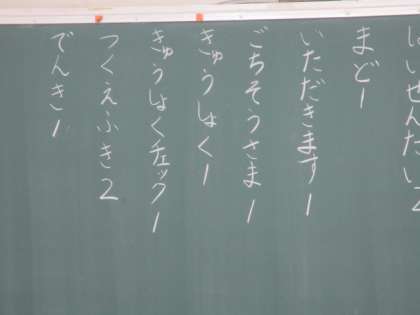 はいぜんだい2
まど1
いただきます1
ごちそうさま1
きゅうしょく1
きゅうしょくチェック1
つくえふき2
でんき1